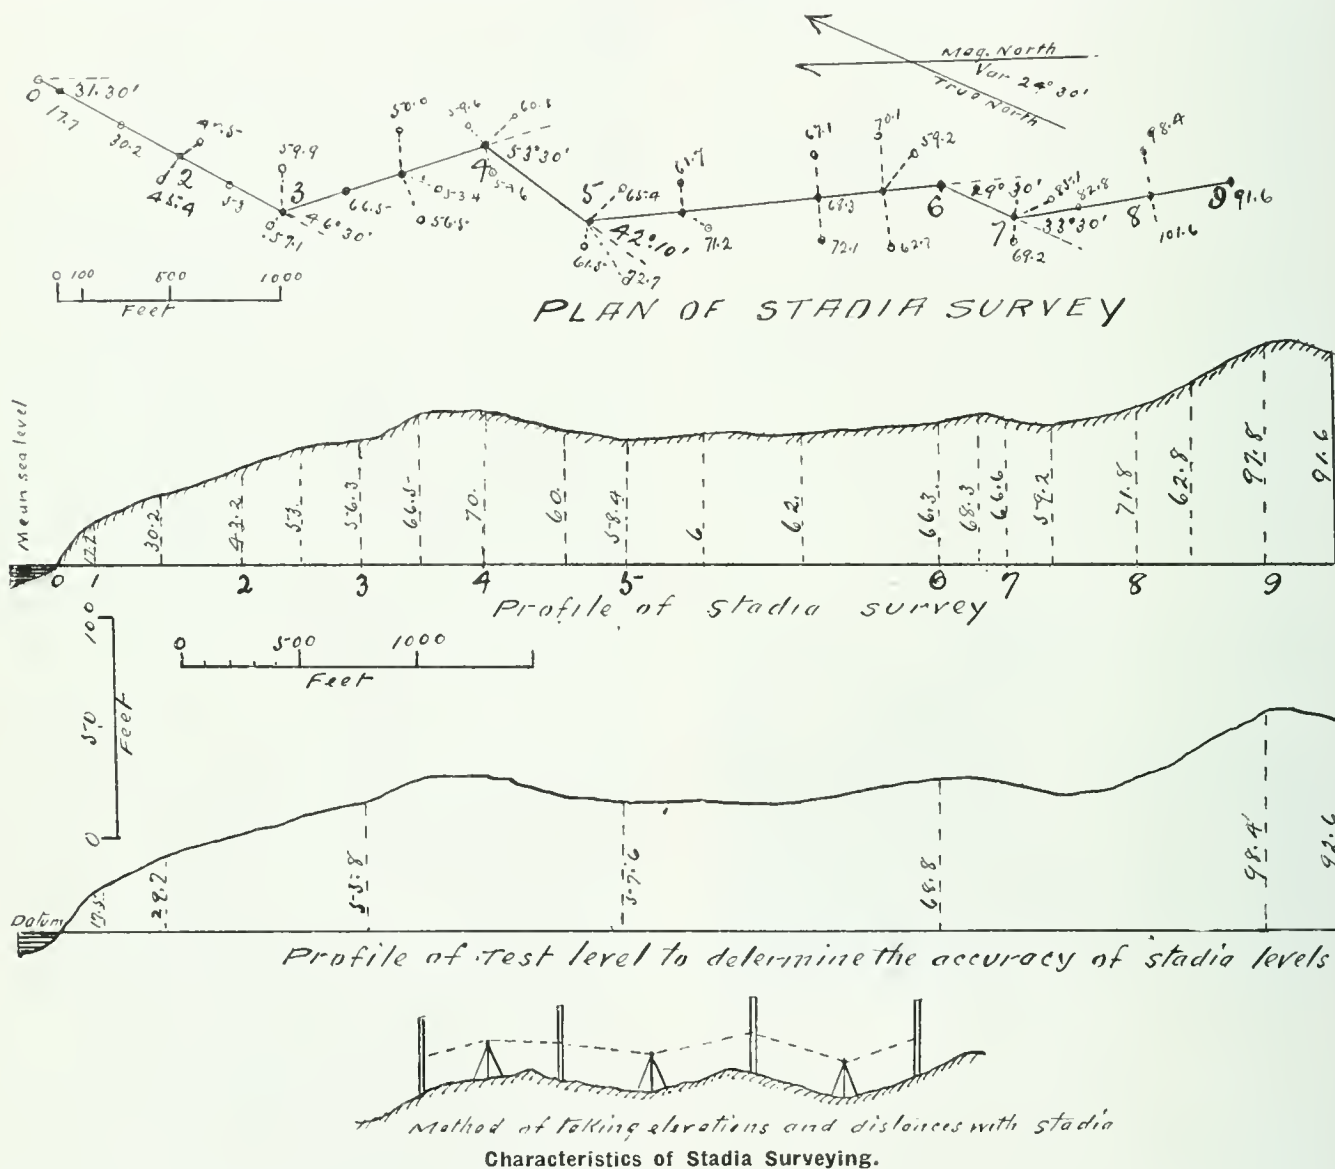 Mag. North
Var 24°30'
True North
37.30'
0
17.7
30.2
2
45.4
59.9
3
57.1
46°30'
66.5
50.0
53.4
56.5
59.6
60.8
4
53°30'
5
65.4
61.5
42°10'
72.7
61.7
71.2
67.1
68.3
72.1
70.1
59.2
62.7
6
29°30'
7
69.2
85.1
82.8
33°30'
98.4
8
101.6
9
91.6
0 100 500 1000
Feet
PLAN OF STADIA SURVEY
Mean sea level
30.2
43.2
53
56.3
66.5
70.
60.
58.4
6
62.
66.3
68.3
66.6
59.2
71.8
62.8
97.8
91.6
0 1 2 3 4 5 6 7 8 9
Profile of Stadia survey
100
50
0
Feet
0 500 1000
Feet
17.5
29.7
55.8
57.6
68.8
98.4
92.6
Datum
Profile of Test level to determine the accuracy of stadia levels
Method of taking elevations and distances with stadia
Characteristics of Stadia Surveying.